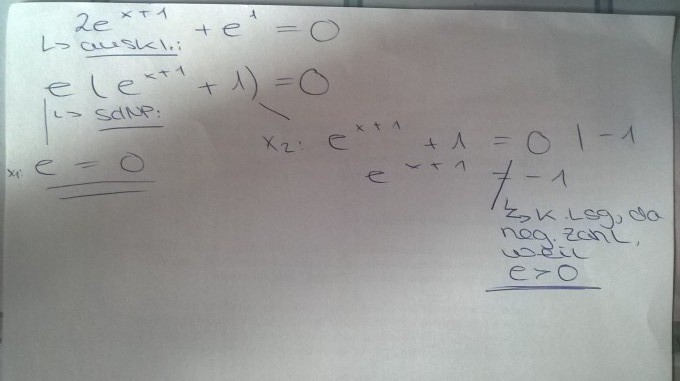 2e^(x+1) + e^1 = 0
↳ auskl.:
e (e^(x+1) + 1) = 0
↳ SdNP:
x1: e = 0
x2: e^(x+1) + 1 = 0 | -1
e^(x+1) ≠ -1
↳ k. Lsg, da
neg. Zahl,
weil
e > 0